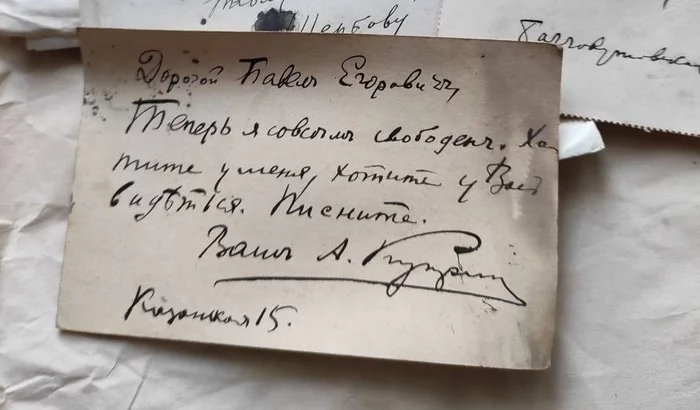 Щербову
Дорогой Павелъ Егоровичъ,
Теперь я совсѣмъ свободенъ. Хо-
тите у меня, хотите у Васъ
видѣться. Пискните.
Вашъ А. Купринъ
Казанская 15.